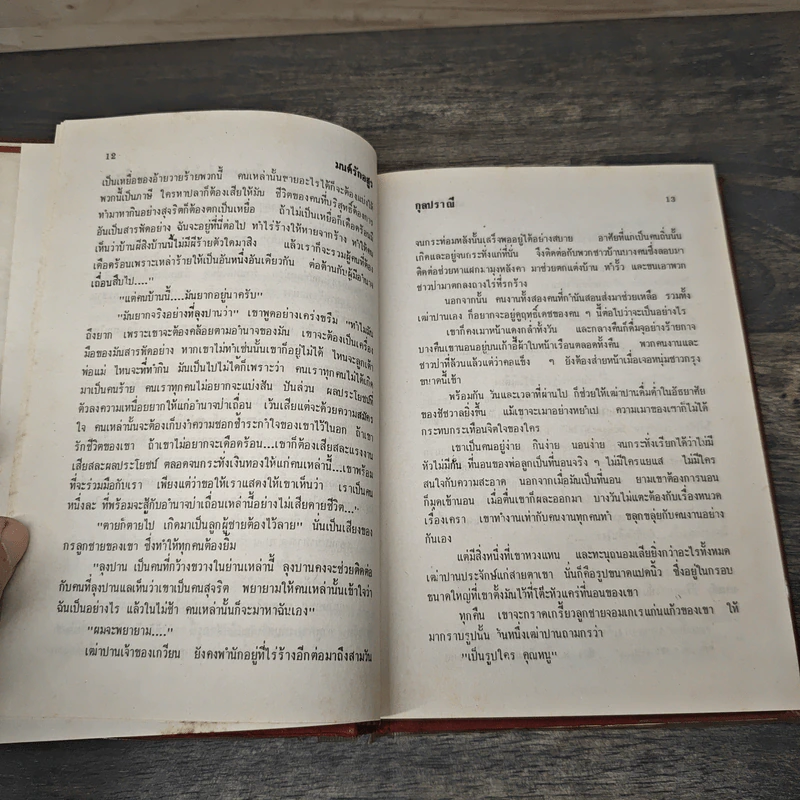 12
มนต์รักอสูร
เป็นเหยื่อของอ้ายวายร้ายพวกนี้ คนเหล่านั้นขายอะไรได้ก็จะต้องแบ่งให้
พวกนี้เป็นภาษี ใครหาปลาก็ต้องเสียให้มัน ชีวิตของคนที่บริสุทธิ์ต้องการ
ทำมาหากินอย่างสุจริตก็ต้องตกเป็นเหยื่อ ถ้าไม่เป็นเหยื่อก็เดือดร้อนมี
อันเป็นสารพัดอย่าง ฉันจะอยู่ที่นี่ต่อไป ทำไร่ร้างให้หายจากร้าง ทำให้คน
เห็นว่าบ้านผีสิงบ้านนี้ไม่มีผีร้ายตัวใดมาสิง แล้วเราก็จะรวมผู้คนที่ต้อง
เดือดร้อนเพราะเหล่าร้ายให้เป็นอันหนึ่งอันเดียวกัน ต่อต้านกับผู้มีอำนาจ
เถื่อนสืบไป...."
"แต่คนบ้านนี้....มันยากอยู่นาครับ"
"มันยากจริงอย่างที่ลุงปานว่า" เขาพูดอย่างเคร่งขรึม "ทำไมมัน
ถึงยาก เพราะเขาจะต้องคล้อยตามอำนาจของมัน เขาจะต้องเป็นเครื่อง
มือของมันสารพัดอย่าง หากเขาไม่ทำเช่นนั้นเขาก็อยู่ไม่ได้ ไหนจะลูกเต้า
พ่อแม่ ไหนจะที่ทำกิน มันเป็นไปไม่ได้ก็เพราะว่า คนเราทุกคนไม่ได้เกิด
มาเป็นคนร้าย คนเราทุกคนไม่อยากจะแบ่งสัน ปันส่วน ผลประโยชน์ที่
ตัวลงความเหนื่อยยากให้แก่อำนาจป่าเถื่อน เว้นเสียแต่จะด้วยความสมัคร
ใจ คนเหล่านั้นจะต้องเก็บงำความชอกช้ำระกำใจของเขาไว้ในอก ถ้าเขา
รักชีวิตของเขา ถ้าเขาไม่อยากจะเดือดร้อน...เขาก็ต้องเสียสละแรงงาน
เสียสละผลประโยชน์ ตลอดจนกระทั่งเงินทองให้แก่คนเหล่านี้....เขาพร้อม
ที่จะร่วมมือกับเรา เพียงแต่ว่าขอให้เราแสดงให้เขาเห็นว่า เราเป็นคน
หนึ่งละ ที่พร้อมจะสู้กับอำนาจป่าเถื่อนเหล่านี้อย่างไม่เสียดายชีวิต..."
"ตายก็ตายไป เกิดมาเป็นลูกผู้ชายต้องไว้ลาย" นั่นเป็นเสียงของ
กรลูกชายของเขา ซึ่งทำให้ทุกคนต้องยิ้ม
"ลุงปาน เป็นคนที่กว้างขวางในย่านเหล่านี้ ลุงปานคงจะช่วยติดต่อ
กับคนที่ลุงปานแลเห็นว่าเขาเป็นคนสุจริต พยายามให้คนเหล่านั้นเข้าใจว่า
ฉันเป็นอย่างไร แล้วในไม่ช้า คนเหล่านั้นก็จะมาหาฉันเอง"
"ผมจะพยายาม...."
เฒ่าปานเจ้าของเกวียน ยังคงพำนักอยู่ที่ไร่ร้างอีกต่อมาถึงสามวัน
กุลปราณี
13
จนกระท่อมหลังนั้นเสร็จพออยู่ได้อย่างสบาย อาศัยที่แกเป็นคนถิ่นนั้น
เกิดและอยู่จนกระทั่งแก่ที่นั่น จึงติดต่อกับพวกชาวบ้านบางคนซึ่งลอบมา
ติดต่อช่วยหาแฝกมามุงหลังคา มาช่วยตกแต่งบ้าน ทำรั้ว และขนเอาพวก
ชาวป่ามาตกลงถางไร่ที่รกร้าง
นอกจากนั้น คนงานทั้งสองคนที่กำนันสอนส่งมาช่วยเหลือ รวมทั้ง
เฒ่าปานเอง ก็อยากจะอยู่ดูฤทธิ์เดชของคน ๆ นี้ต่อไปว่าจะเป็นอย่างไร
เขาก็คงเมาหน้าแดงก่ำทั้งวัน และกลางคืนก็ดื่มจุอย่างร้ายกาจ
บางคืนเขานอนอยู่บนเก้าอี้ผ้าใบหน้าเรือนตลอดทั้งคืน พวกคนงานและ
ชาวป่าที่ล้วนแล้วแต่ว่าคอแข็ง ๆ ยังต้องส่ายหน้าเมื่อเจอหนุ่มชาวกรุง
ขนาดนี้เข้า
พร้อมกัน วันและเวลาที่ผ่านไป ก็ช่วยให้เฒ่าปานดื่มด่ำในอัธยาศัย
ของชัชวาลยิ่งขึ้น แม้เขาจะเมาอย่างหยำเป ความเมาของเขาก็ไม่ได้
กระทบกระเทือนจิตใจของใคร
เขาเป็นคนอยู่ง่าย กินง่าย นอนง่าย จนกระทั่งเรียกได้ว่าไม่มี
หัวไม่มีก้น ที่นอนของพ่อลูกเป็นที่นอนจริง ๆ ไม่มีใครแยแส ไม่มีใคร
สนใจกับความสะอาด นอกจากเมื่อมันเป็นที่นอน ยามเขาต้องการนอน
ก็มุดเข้านอน เมื่อตื่นเขาก็ผละออกมา บางวันไม่แตะต้องกับเรื่องหนวด
เรื่องเครา เขาทำงานเท่ากับคนงานทุกคนทำ ขลุกขลุ่ยกับคนงานอย่าง
กันเอง
แต่มีสิ่งหนึ่งที่เขาหวงแหน และทะนุถนอมเสียยิ่งกว่าอะไรทั้งหมด
เฒ่าปานประจักษ์แก่สายตาเขา นั่นก็คือรูปขนาดแปดนิ้ว ซึ่งอยู่ในกรอบ
ขนาดใหญ่ที่เขาตั้งมันไว้ที่โต๊ะหัวแคร่ที่นอนของเขา
ทุกคืน เขาจะกราดเกรี้ยวลูกชายจอมเกเรแก่นแก้วของเขา ให้
มากราบรูปนั้น วันหนึ่งเฒ่าปานถามกรว่า
"เป็นรูปใคร คุณหนู"